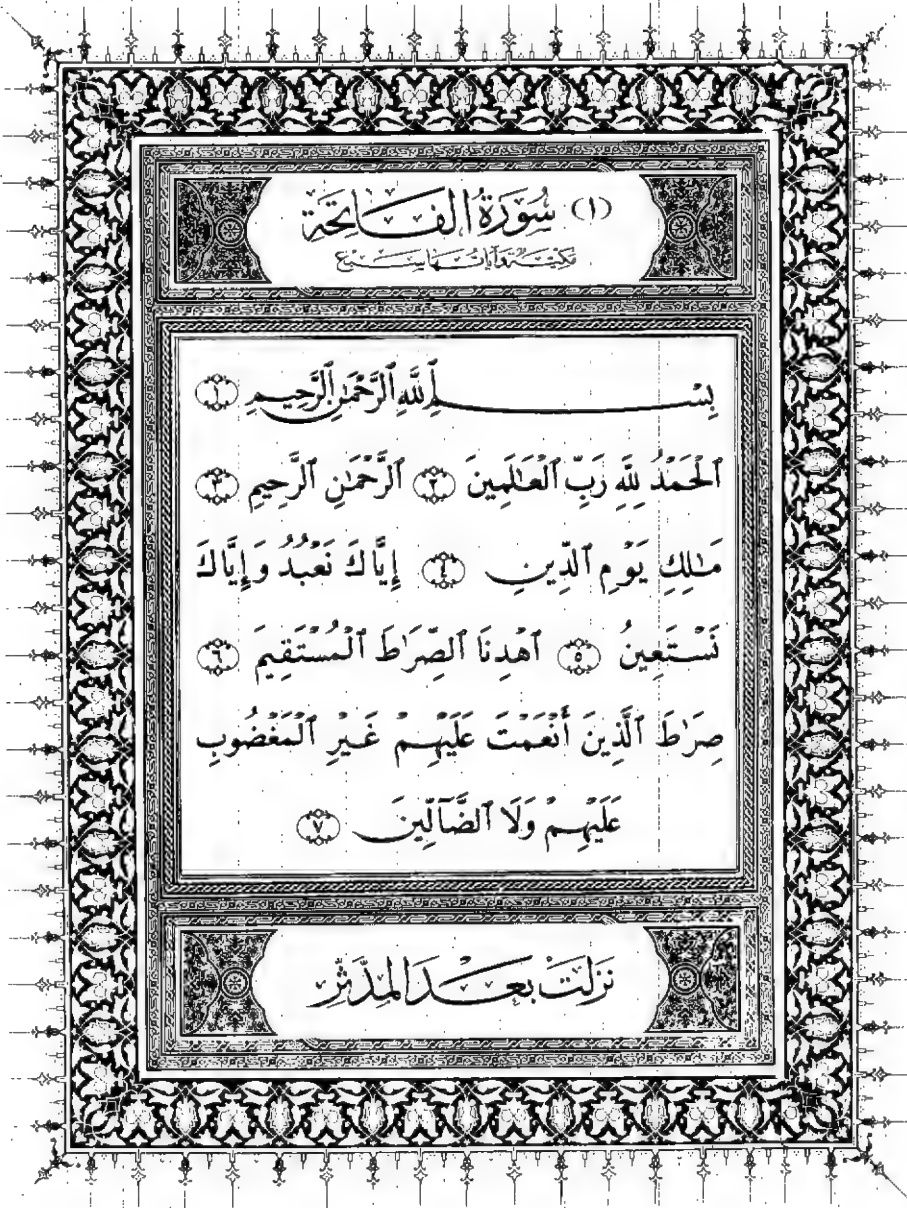 (١) سُورَةُ الفَاتِحَةِ
مكيّة وآياتها سبع
بِسْمِ ٱللَّهِ ٱلرَّحْمَٰنِ ٱلرَّحِيمِ ١
ٱلْحَمْدُ لِلَّهِ رَبِّ ٱلْعَٰلَمِينَ ٢ ٱلرَّحْمَٰنِ ٱلرَّحِيمِ ٣
مَٰلِكِ يَوْمِ ٱلدِّينِ ٤ إِيَّاكَ نَعْبُدُ وَإِيَّاكَ
نَسْتَعِينُ ٥ ٱهْدِنَا ٱلصِّرَٰطَ ٱلْمُسْتَقِيمَ ٦
صِرَٰطَ ٱلَّذِينَ أَنْعَمْتَ عَلَيْهِمْ غَيْرِ ٱلْمَغْضُوبِ
عَلَيْهِمْ وَلَا ٱلضَّآلِّينَ ٧
نَزَلَتْ بَعْدَ المدَّثِّر